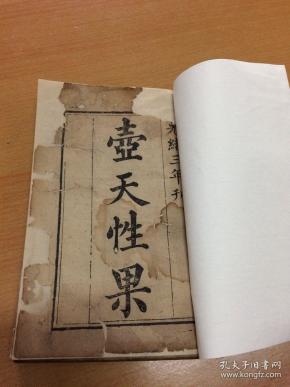 光緒三年刊
壺天性果
孔夫子旧书网